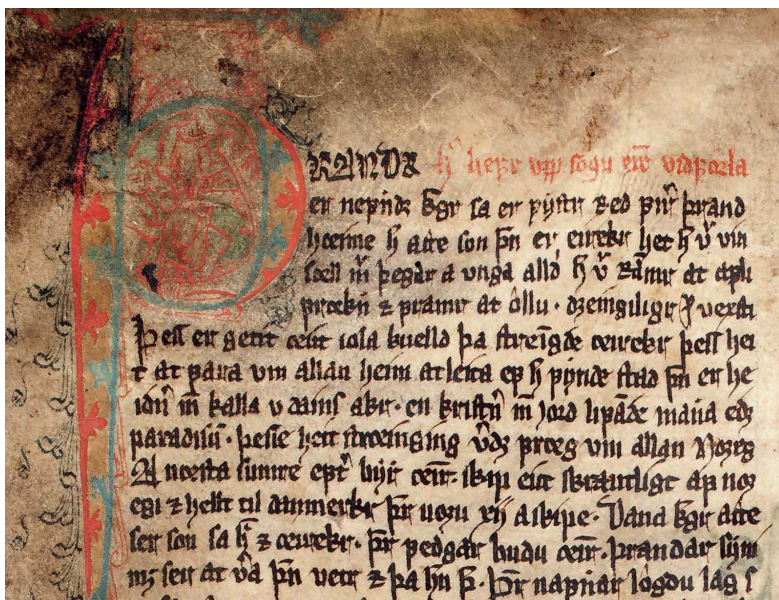 ÞRANDR h̅ hefr vpp sogu eir̅ vidforla
er nefndr kgr sa er fystr red fir̅ þrand
hæime h̅ atte son þn̅ er eirekr het h̅ v̅ vin
sæll m̅ þegar a vnga alld h̅ v̅ rāmr at afli
frækn ꝛ framr at ollu. dreingiligr j vexti
Þess er getit æitt iola kuelld þa streīgde æirekr þess hei
t at fara vm allan heim at leita ef h̅ fynde stad þn̅ er he
idn̅ m̅ kalla vdains akr. en kristn̅ m̅ iord lifāde manna edr
paradisū. þesse heit stræinging v̅dr fræg vm allan Noreg
A næsta sumre ept̅ byr æir̅. skip eitt skrautligt af nor
egi ꝛ hellt til danmerkr þr̅ uoru xij a skipe. Dana kgr atte
ser son sa h̅ ꝛ æirekr. þr̅ fedgar budu æir̅. þrandar syni
m; ser at v̅a þn̅ vetr ꝛ þa hn̅ þ̅. Þr̅ nafnar logdu lag s